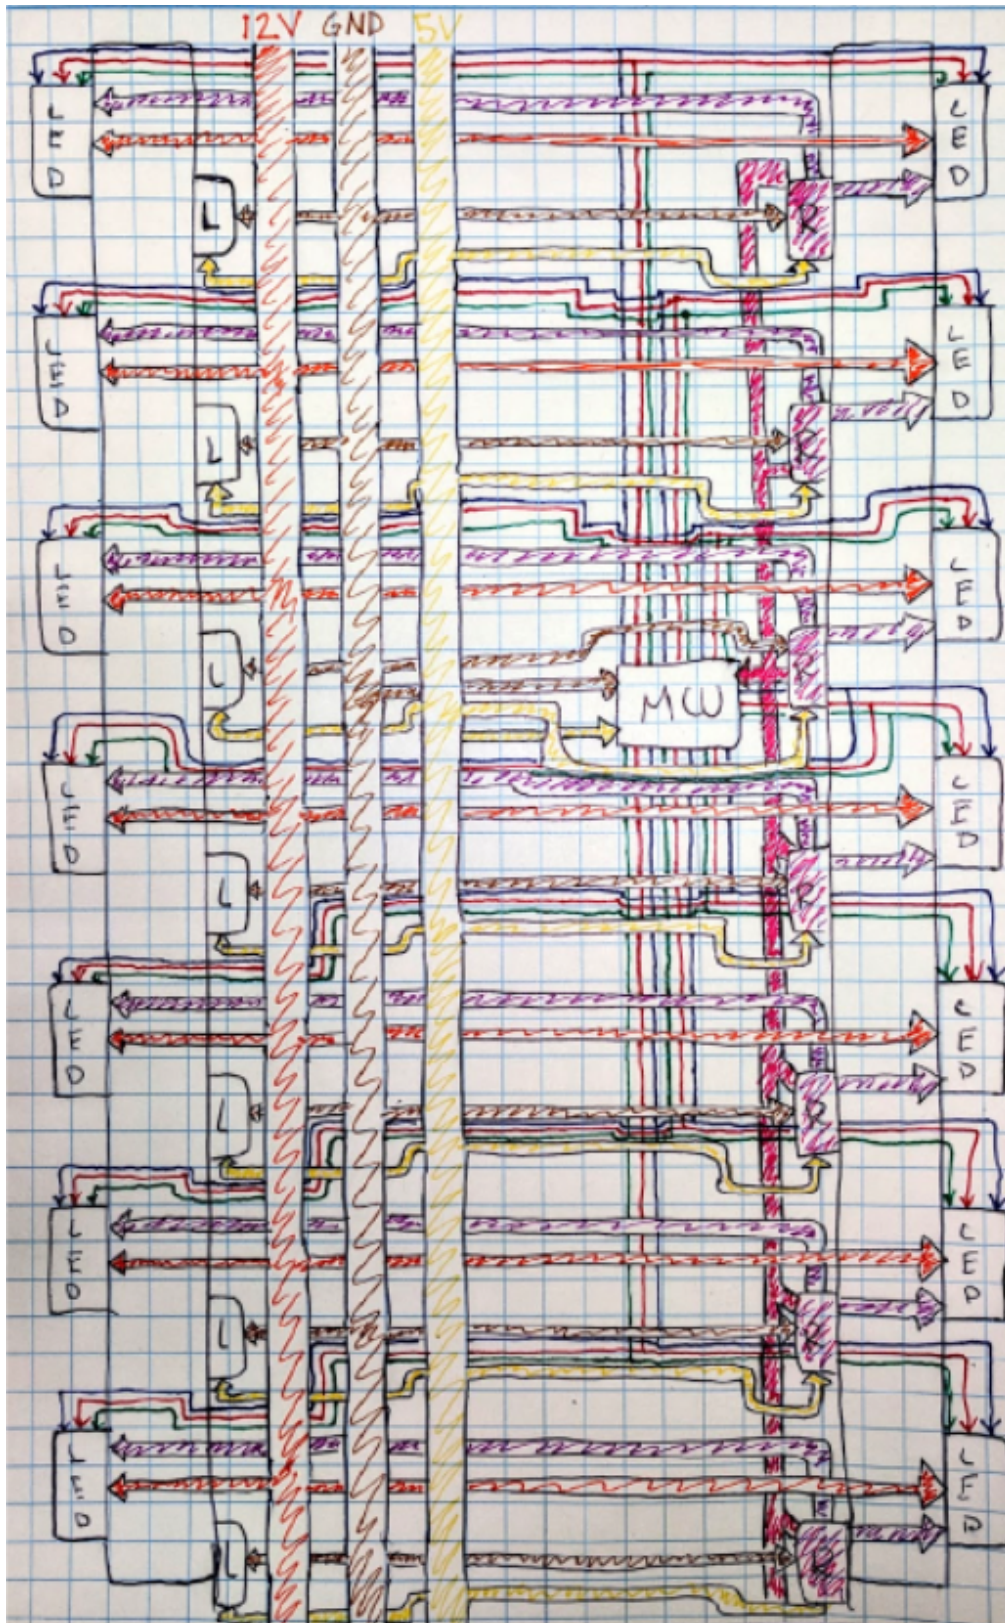 12V GND 5V
LED LED
L R
LED LED
L R
LED LED
L R
MW
LED LED
L R
LED LED
L R
LED LED
L R
LED LED
L R